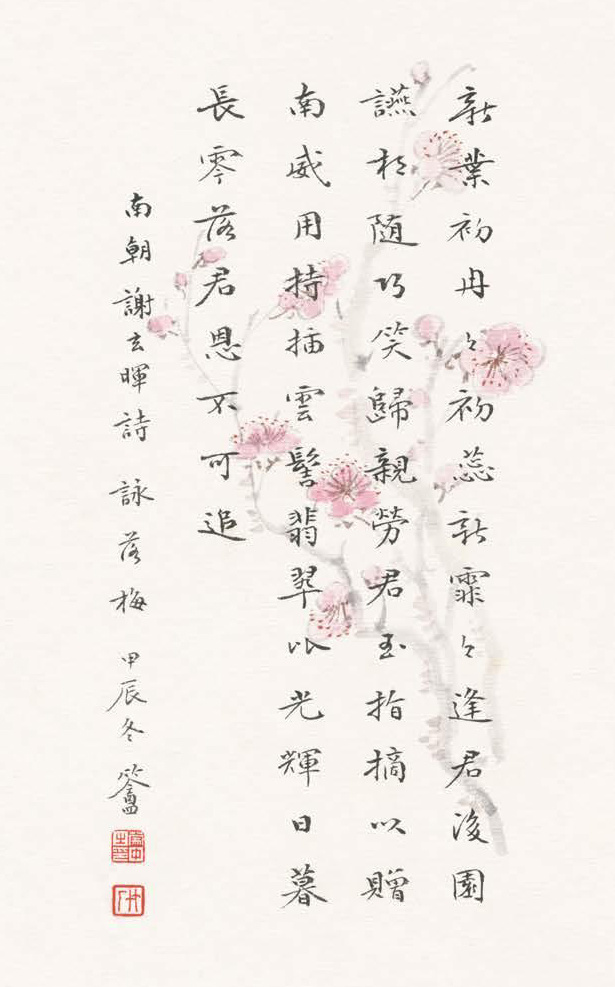 新葉初冉々初蕊新霏々逢君後園
讌相随巧笑歸親勞君玉指摘以贈
南威用持插雲髻翡翠比光輝日暮
長零落君恩不可追
南朝謝玄暉詩 詠落梅 甲辰冬